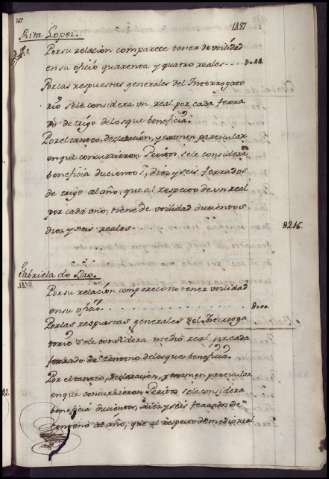 1887
Rita Lopez.
Por su relación comparece tener de utilidad
en su oficio quarenta y quatro reales
Por las respuestas generales del Interrogato
rio se le considera un real por cada ferra
do de trigo de los que beneficia
Por el tanteo, declaración, y examen particular
en que concurrieron Peritos, se le considera
beneficia ducientos, diez y seis ferrados
de trigo al año, que al respecto de un real
por cada uno, tiene de utilidad ducientos
diez y seis reales
8216.
Gabriela do
Por su relación comparece no tener utilidad
en su oficio
Por las respuestas generales del Interroga
torio se le considera medio real por cada
ferrado de centeno de los que beneficia
Por el tanteo, declaración, y examen particular
en que concurrieron Peritos se le considera
beneficia ducientos, diez y seis ferrados de
centeno al año, que al respecto de medio real